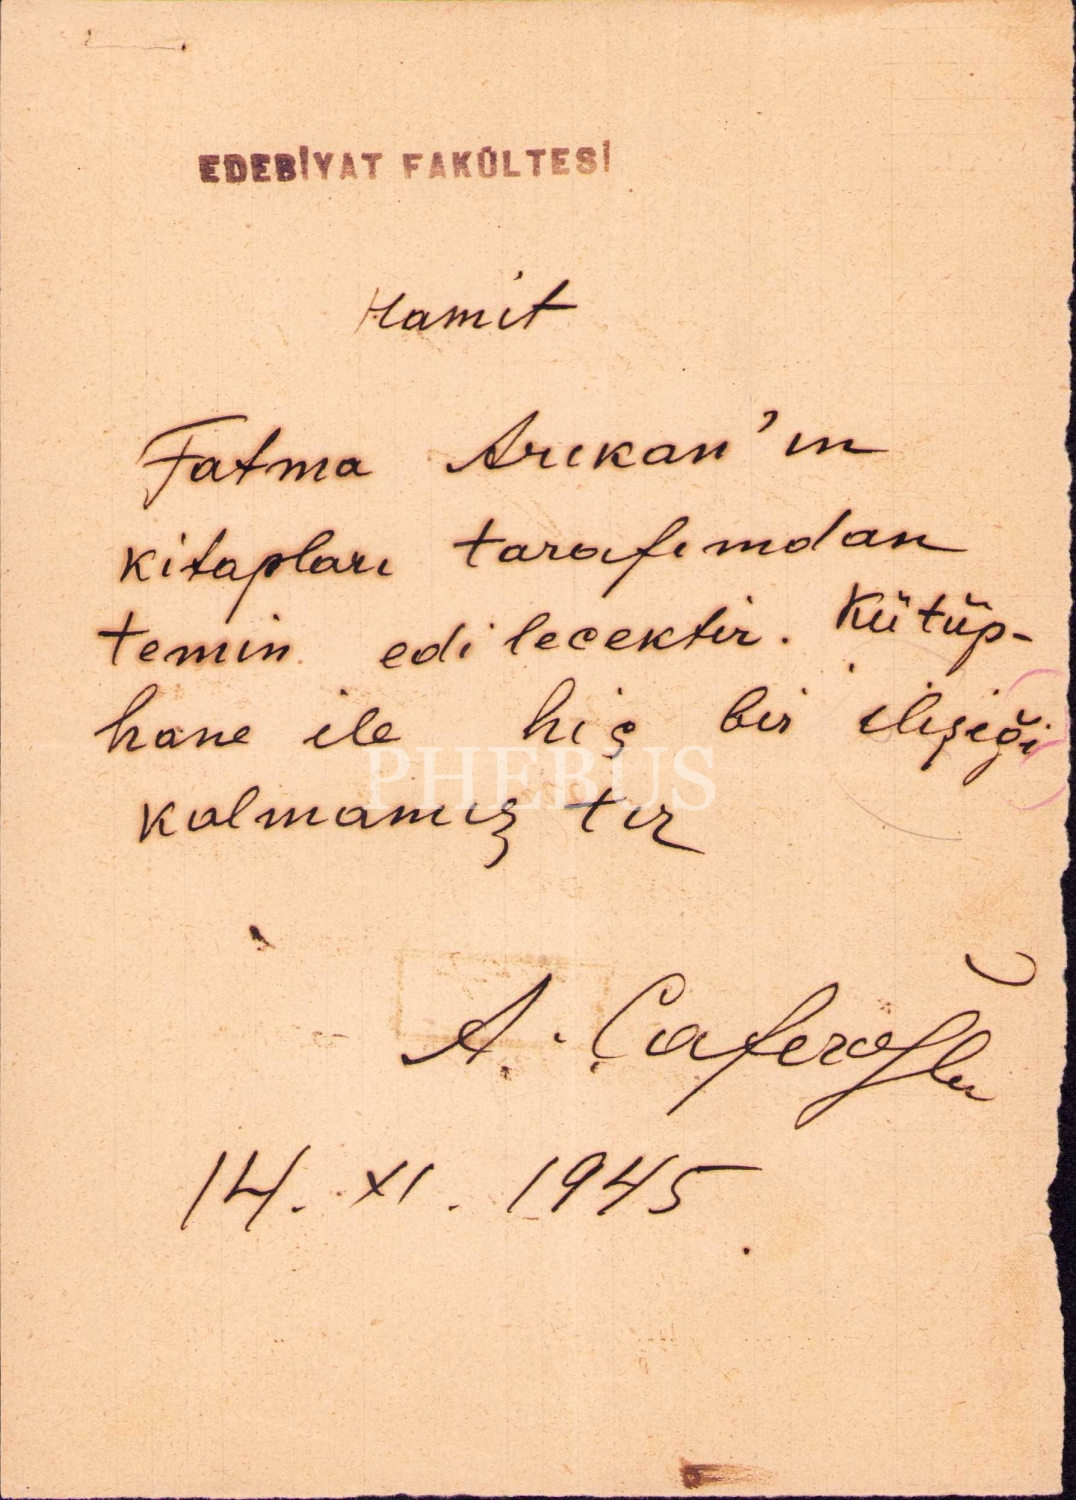 EDEBİYAT FAKÜLTESİ
Hamit
Fatma Arıkan'ın
kitapları tarafımdan
temin edilecektir. Kütüp-
hane ile hiç bir ilişiği
PHEBUS
kalmamıştır
A. Caferoğlu
14. XI. 1945